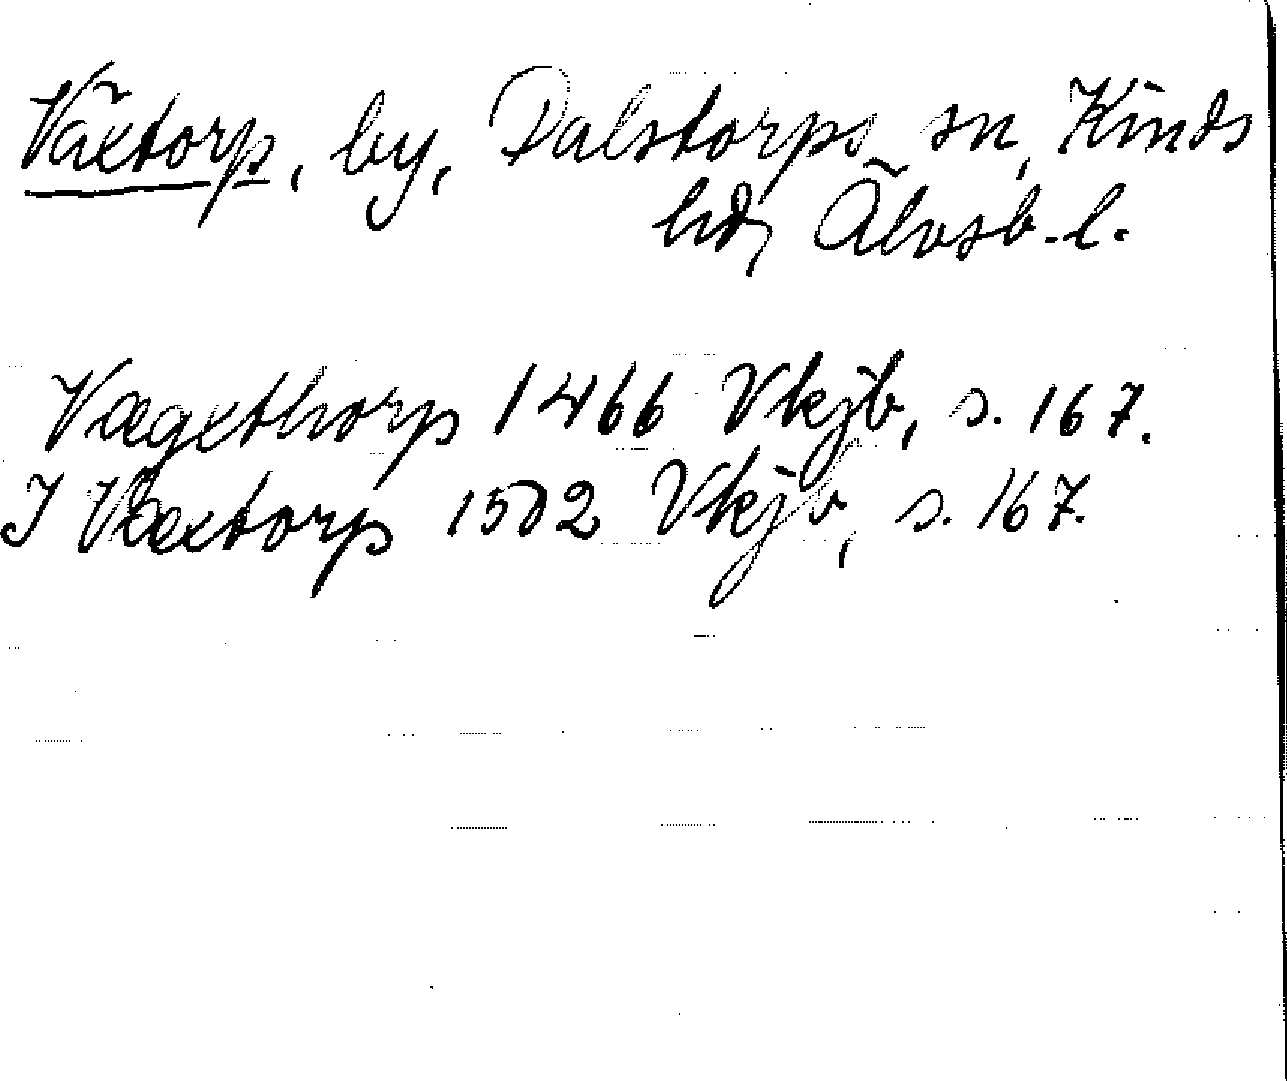 Växtorp, by, Dalstorps sn, Kinds
hd, Älvsb. l.
Vægxthorp 1466 Vkjb, s. 167.
I Væxtorp 1502 Vkjb, s. 167.